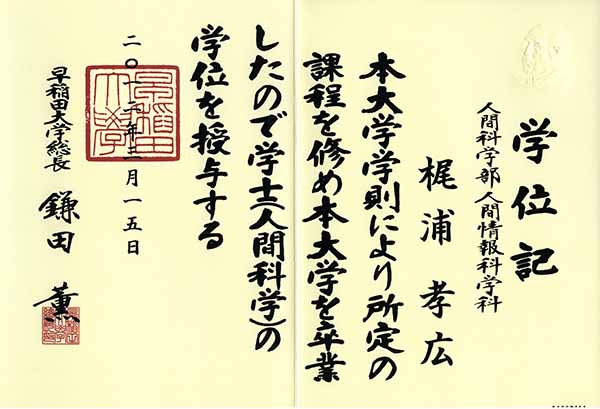 学位記
人間科学部 人間情報科学科
梶浦孝広
本大学学則により所定の
課程を修め本大学を卒業
したので学士(人間科学)の
学位を授与する
二〇一二年三月一五日
早稲田大学総長 鎌田薫
早稲田
大学